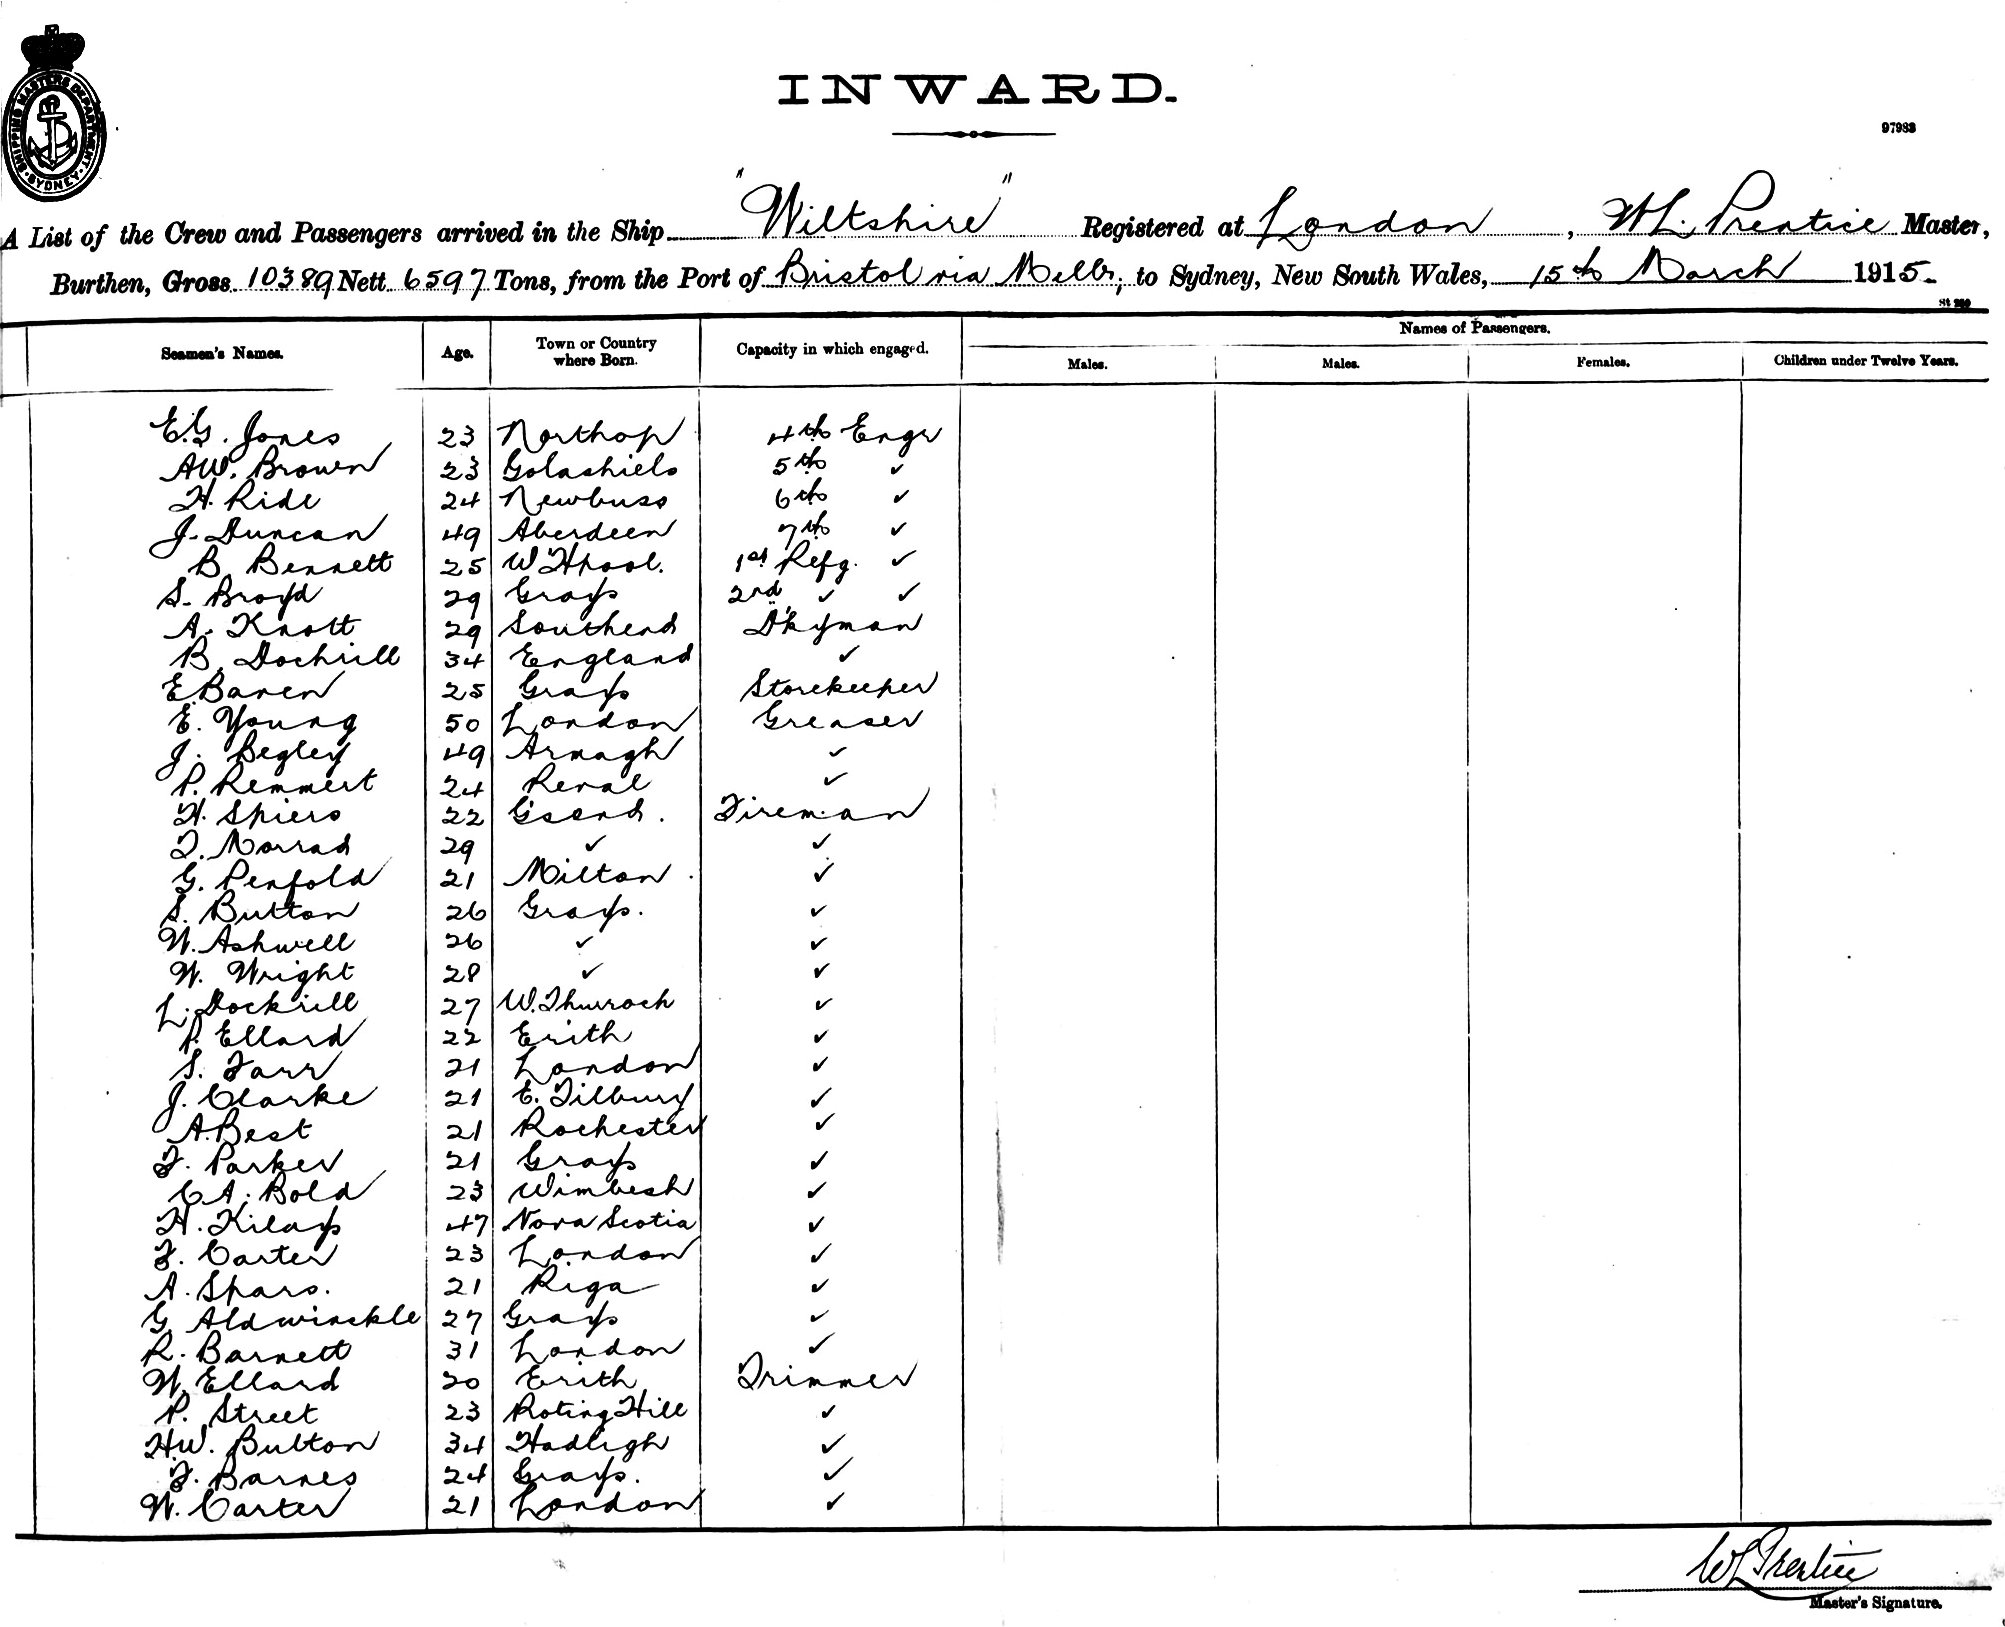 SHIPPING MASTERS DEPARTMENT · SYDNEY ·
INWARD.
97983
A List of the Crew and Passengers arrived in the Ship "Wiltshire" Registered at London, WL. Prentice Master,
Burthen, Gross 10389 Nett 6597 Tons, from the Port of Bristol via Melbr; to Sydney, New South Wales, 15th March 1915.
Seamen's Names. Age. Town or Country where Born. Capacity in which engaged. Names of Passengers.
Males. Males. Females. Children under Twelve Years.
E.G. Jones 23 Northop 4th Engr
A.W. Brown 23 Golashiels 5th ✓
H. Ride 24 Newbuss 6th ✓
J. Duncan 49 Aberdeen 7th ✓
B. Bennett 25 W Hpool. 1st Refg. ✓
S. Broyd 29 Grays 2nd ✓ ✓
A. Knott 29 Southend D'kyman
B. Dockrill 34 England ✓
E Baren 25 Grays Storekeeper
E. Young 50 London Greaser
J. Begley 49 Armagh ✓
P. Remmert 24 Reval ✓
H. Spiers 22 G'send. Fireman
T. Morrad 29 ✓ ✓
G. Penfold 21 Milton. ✓
S. Button 26 Grays. ✓
W. Ashwell 26 ✓ ✓
W. Wright 28 ✓ ✓
L. Dockrill 27 W. Thurroch ✓
P. Ellard 22 Erith ✓
S. Farr 21 London ✓
J. Clarke 21 E. Tilbury ✓
A. Best 21 Rochester ✓
F. Parker 21 Grays ✓
C A. Bold 23 Wimbesh ✓
H. Kilays 47 Nova Scotia ✓
F. Carter 23 London ✓
A. Spars. 21 Riga ✓
G. Aldwinckle 27 Grays ✓
R. Barnett 31 London ✓
W. Ellard 20 Erith Trimmer
P. Street 23 Roting Hill ✓
H.W. Bulton 34 Hadligh ✓
F. Barnes 24 Grays. ✓
W. Carter 21 London ✓
WL Prentice
Master's Signature.